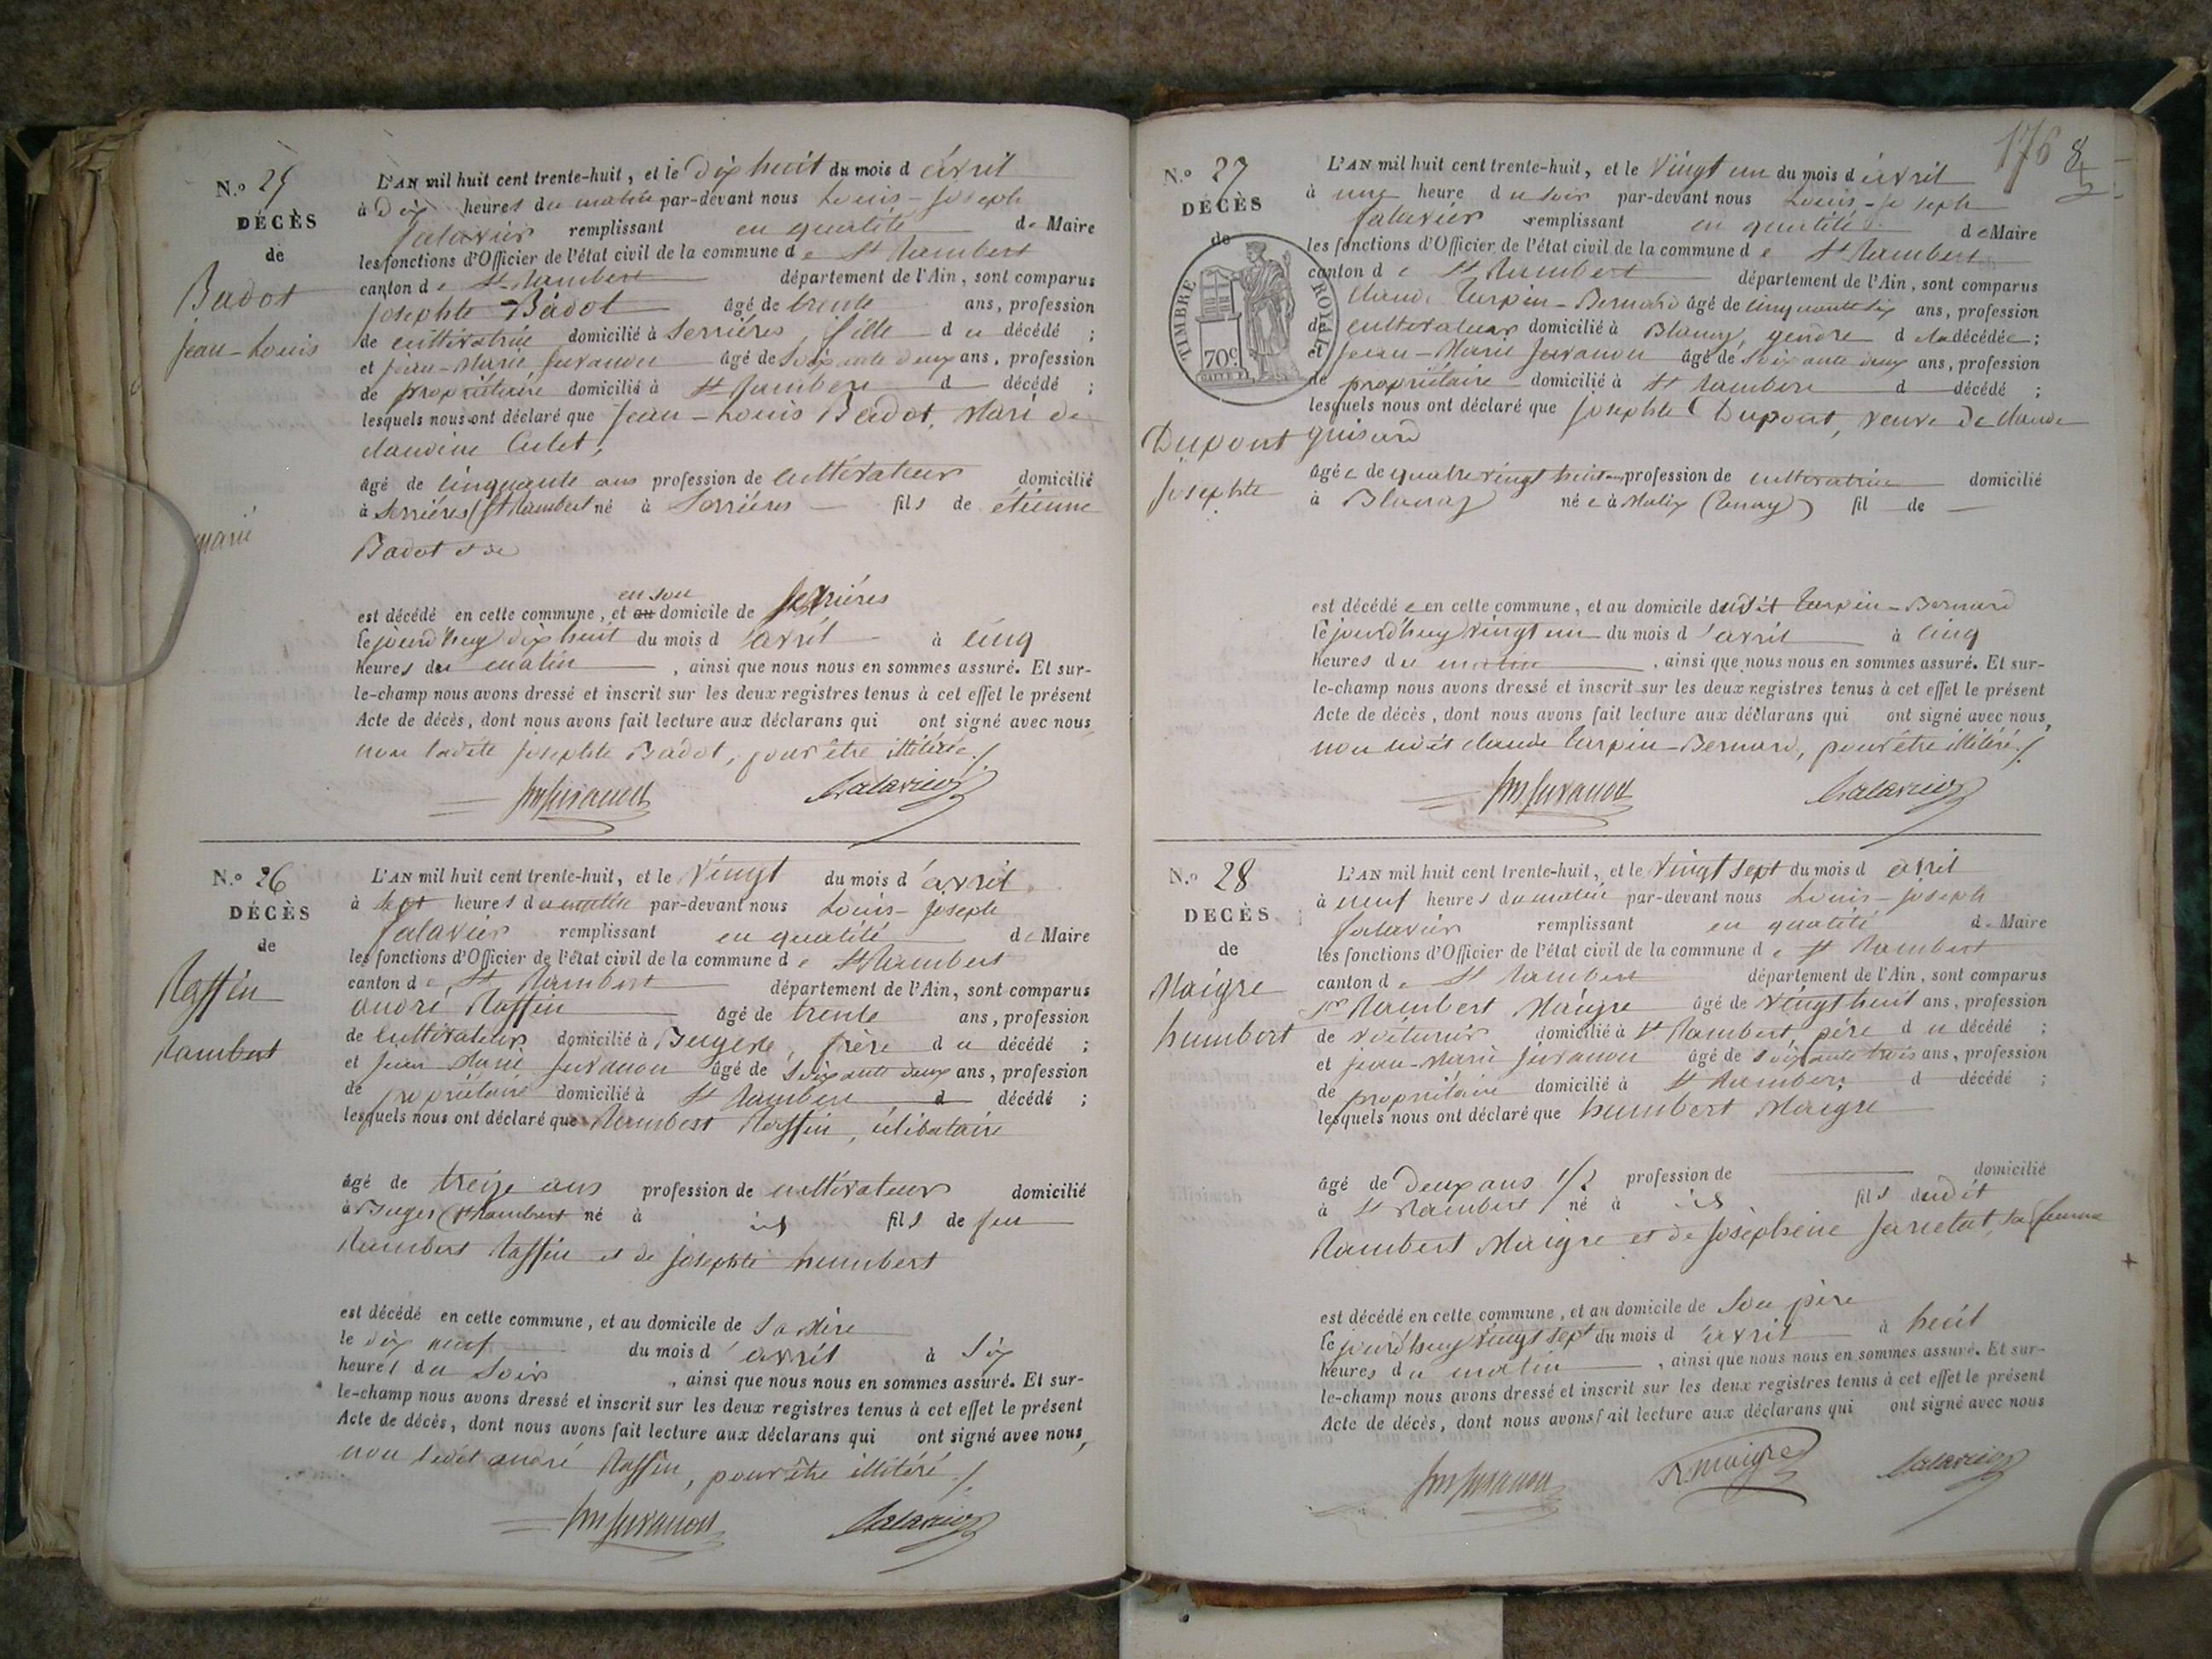 N.º 25
DÉCÈS
de
Badot
jean-Louis
marié
L'AN mil huit cent trente-huit, et le Dix huit du mois d'avril
à Dix heures du matin par-devant nous Louis-joseph
Salavier remplissant en qualité de Maire
les fonctions d'Officier de l'état civil de la commune de St Rambert
canton de St Rambert département de l'Ain, sont comparus
josephte Badot âgé de trente ans, profession
de cultivatrice domicilié à Serriéres, fille du décédé ;
et jean-Marie juvanon âgé de Soixante deux ans, profession
de propriétaire domicilié à St Rambert d décédé ;
lesquels nous ont déclaré que jean-Louis Badot, Mari de
claudine Culet,
âgé de cinquante ans profession de cultivateur domicilié
à Serriéres (St Rambert né à Serriéres fils de étienne
Badot et de
est décédé en cette commune, et au en son domicile de Serriéres
le jourd'huy dix huit du mois d'avril à cinq
heures du matin, ainsi que nous nous en sommes assuré. Et sur-
le-champ nous avons dressé et inscrit sur les deux registres tenus à cet effet le présent
Acte de décès, dont nous avons fait lecture aux déclarans qui ont signé avec nous,
non ladite josephte Badot, pour être illitérée ./.
jm juvanon Salavier
N.º 26
DÉCÈS
de
Raffin
Rambert
L'AN mil huit cent trente-huit, et le Vingt du mois d'avril
à sept heures du matin par-devant nous Louis-joseph
Salavier remplissant en qualité de Maire
les fonctions d'Officier de l'état civil de la commune de St Rambert
canton de St Rambert département de l'Ain, sont comparus
andré Raffin âgé de trente ans, profession
de cultivateur domicilié à , frère du décédé ;
et jean Marie juvanon âgé de Soixante deux ans, profession
de propriétaire domicilié à St Rambert d décédé ;
lesquels nous ont déclaré que Rambert Raffin, célibataire
âgé de treize ans profession de cultivateur domicilié
à (St Rambert né à fils de feu
Rambert Raffin et de josephte humbert
est décédé en cette commune, et au domicile de Sa Mère
le dix neuf du mois d'avril à Six
heures du Soir, ainsi que nous nous en sommes assuré. Et sur-
le-champ nous avons dressé et inscrit sur les deux registres tenus à cet effet le présent
Acte de décès, dont nous avons fait lecture aux déclarans qui ont signé avec nous,
non ledit andré Raffin, pour être illitéré ./.
jm juvanon Salavier
176
N.º 27
DÉCÈS
de
TIMBRE ROYAL
70c
Dupont
josephte
L'AN mil huit cent trente-huit, et le Vingt un du mois d'avril
à une heure du soir par-devant nous Louis-joseph
Salavier remplissant en qualité de Maire
les fonctions d'Officier de l'état civil de la commune de St Rambert
canton de St Rambert département de l'Ain, sont comparus
claude Turpin-Bernard âgé de cinquante six ans, profession
de cultivateur domicilié à Blanaz, gendre de la décédée ;
et jean-Marie juvanon âgé de Soixante deux ans, profession
de propriétaire domicilié à St Rambert d décédé ;
lesquels nous ont déclaré que josephte Dupont, veuve de claude
guisard
âgée de quatre vingt huit ans profession de cultivatrice domicilié
à Blanaz née à Malix (Tenay) fil de
est décédée en cette commune, et au domicile dudit Turpin-Bernard
le jourd'huy vingt un du mois d'avril à cinq
heures du matin, ainsi que nous nous en sommes assuré. Et sur-
le-champ nous avons dressé et inscrit sur les deux registres tenus à cet effet le présent
Acte de décès, dont nous avons fait lecture aux déclarans qui ont signé avec nous,
non ledit claude Turpin-Bernard, pour être illitéré ./.
jm juvanon Salavier
N.º 28
DÉCÈS
de
Maigre
humbert
L'AN mil huit cent trente-huit, et le Vingt Sept du mois d'avril
à neuf heures du matin par-devant nous Louis-joseph
Salavier remplissant en qualité de Maire
les fonctions d'Officier de l'état civil de la commune de St Rambert
canton de St Rambert département de l'Ain, sont comparus
Sr Rambert Maigre âgé de vingt huit ans, profession
de voiturier domicilié à St Rambert, père du décédé ;
et jean-Marie juvanon âgé de Soixante trois ans, profession
de propriétaire domicilié à St Rambert d décédé ;
lesquels nous ont déclaré que humbert Maigre
âgé de Deux ans 1/2 profession de domicilié
à St Rambert né à fils dudit
Rambert Maigre et de joséphine Janetat, sa femme
est décédé en cette commune, et au domicile de Son père
le jourd'huy vingt sept du mois d'avril à huit
heures du matin, ainsi que nous nous en sommes assuré. Et sur-
le-champ nous avons dressé et inscrit sur les deux registres tenus à cet effet le présent
Acte de décès, dont nous avons fait lecture aux déclarans qui ont signé avec nous
jm juvanon R. maigre Salavier